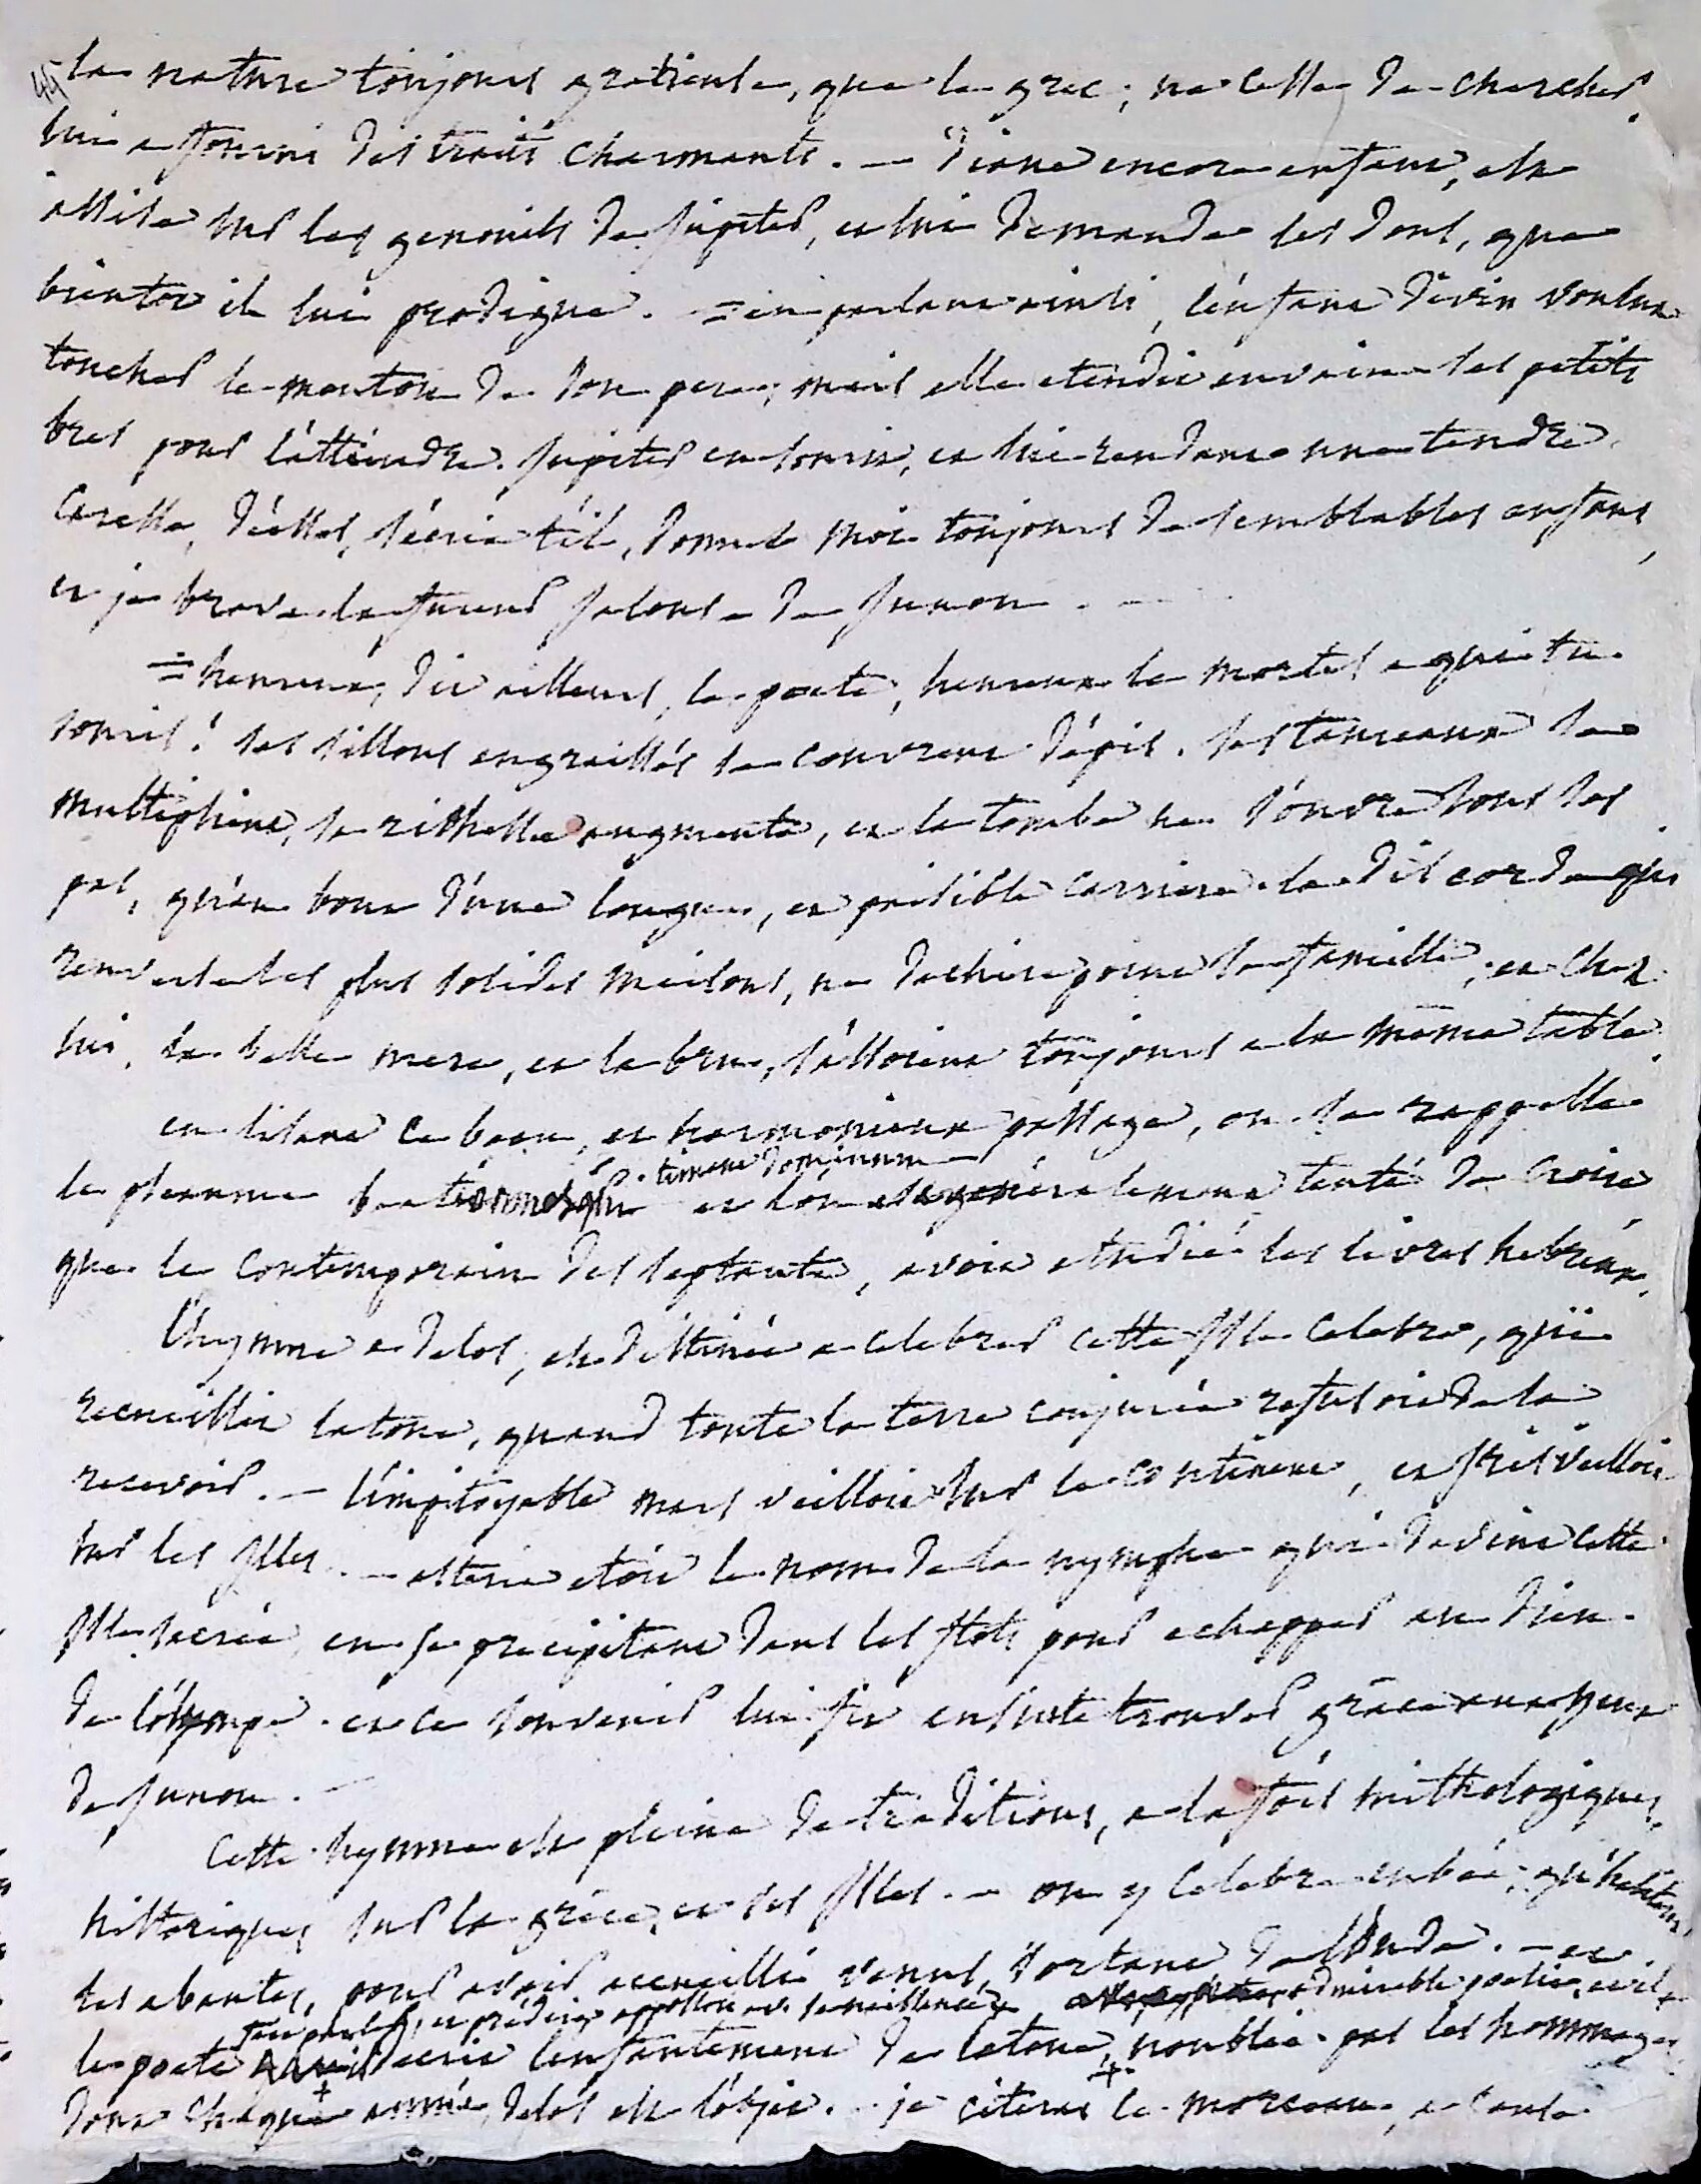 44
la nature toujours gratieuse, que le grec, ne cesse de chercher
lui a fourni des traits charmants. — Diane encore enfant, est
assise sur les genouils de Jupiter, et lui demande les dons, que
bientot il lui prodigue. = en parlant ainsi, l'enfant divin voulut
toucher le menton de son pere; mais elle etendit en vain ses petits
bras pour l'atteindre. Jupiter en sourit, et lui rendant une tendre
caresse, déesses, s'écria t'il, donnés moi toujours de semblables enfans,
et je brave la fureur jalouse de Junon. —
= heureux, dit ailleurs, le poete, heureux le mortel a qui tu
souris! ses sillons engraissés se couvrent d'épis. ses taureaux se
multiplient, sa richesse augmente, et la tombe ne s'ouvre sous ses
pas, qu'au bout d'une longue, et paisible carriere. la discorde qui
renverse les plus solides maisons, ne dechire point sa famille, et chez
lui, la belle mere, et la bru, s'assoient toujours a la même table.
en lisant ce beau, et harmonieux passage, on se rappelle
le pseaume beati omnes qui timent dominum et l'on est generalement tenté de croire
que le contemporain des septante, avoit etudié les livres hebreux.
l'hymne a Delos, est destinée a celebrer cette Isle celebre, qui
recueillit latone, quand toute la terre conjurée refusoit de la
recevoir. — l'impitoyable mars veilloit sur le continent, et Iris veilloit
sur les Isles. — asterie etoit le nom de la nymphe qui devint cette
Isle sacrée, en se precipitant dans les flots pour echapper au Dieu
de l'olympe. et ce souvenir lui fit ensuite trouver grâce aux yeux
de Junon. —
Cette hymne est pleine de traditions, a la fois mithologiques,
historiques sur la grèce, et ses Isles. — on y celebre eubée, qu'habitent
les abantes, pour avoir accueilli venus, sortant de l'onde. — et
fait parler, et prédire appollon avant sa naissance, admirable poesie, et il
le poete decrit l'enfantement de latone, n'oublie pas les hommages
dont chaque année, Delos est l'objet. — je citerai le morceau, a cause